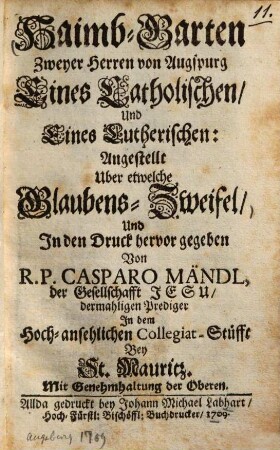 11.
Haimb-Garten
Zweyer Herren von Augspurg
Eines Catholischen/
Und
Eines Lutherischen:
Angestellt
Uber etwelche
Glaubens-Zweifel/,
Und
In den Druck hervor gegeben
Von
R.P. CASPARO MÄNDL,
der Gesellschafft JESU/
dermahligen Prediger
In dem
Hoch-ansehlichen Collegiat-Stüfft
Bey
St. Mauritz.
Mit Genehmhaltung der Oberen.
Allda gedruckt bey Johann Michael Labhart/
Hoch-Fürstl: Bischöffl: Buchdrucker/ 1709.
Augsburg 1709